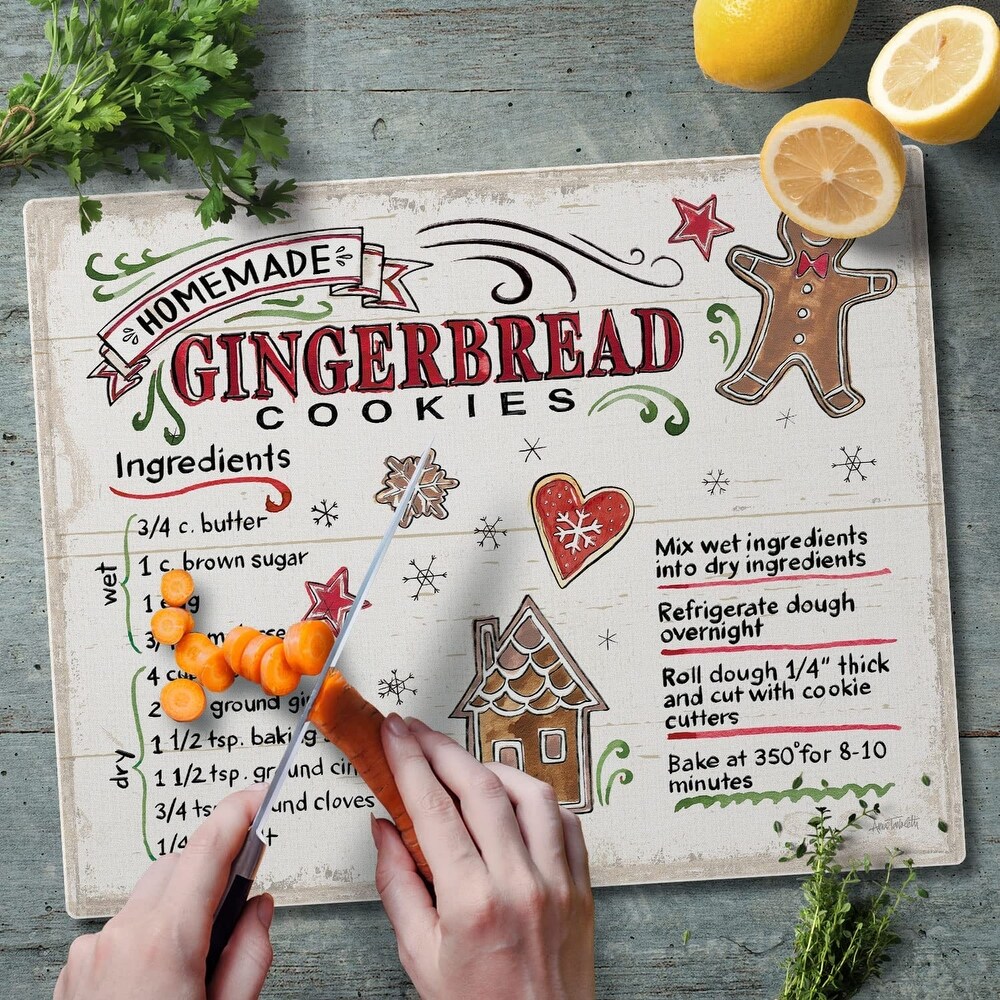 HOMEMADE
GINGERBREAD
COOKIES
Ingredients
wet
3/4 c. butter
1 c. brown sugar
1 egg
3/
dry
4
2 ground
1 1/2 tsp. baking
1 1/2 tsp. ground
3/4 ground cloves
1/4
Mix wet ingredients
into dry ingredients
Refrigerate dough
overnight
Roll dough 1/4" thick
and cut with cookie
cutters
Bake at 350° for 8-10
minutes